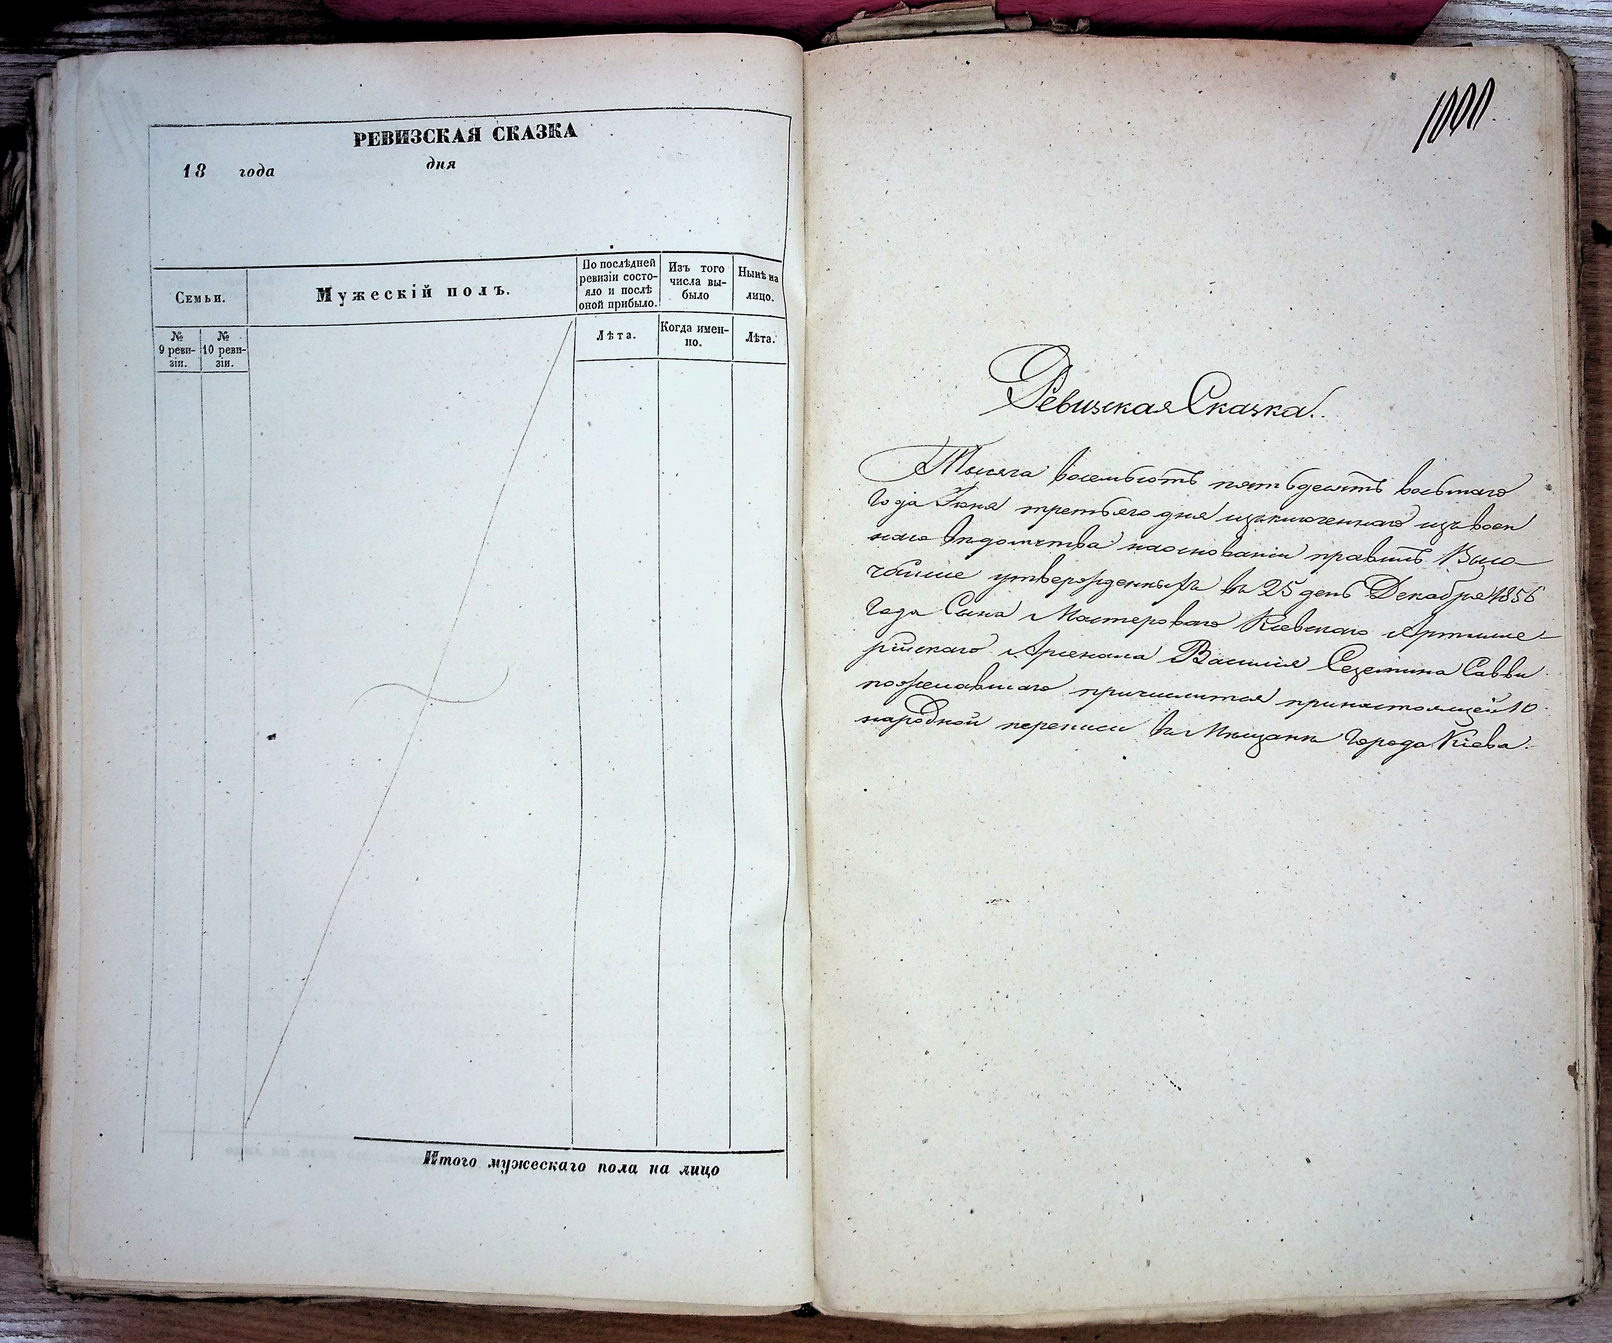 РЕВИЗСКАЯ СКАЗКА
18 года дня
Семьи.
Мужескій полъ.
По послѣдней ревизіи состояло и послѣ оной прибыло.
Изъ того числа выбыло
Нынѣ на лицо.
№ 9 ревизіи.
№ 10 ревизіи.
Лѣта.
Когда именно.
Лѣта.
Итого мужескаго пола на лицо
1000
Ревизская Сказка.
Тысяча восемьсотъ пятьдесятъ восьмаго
Года Іюня третьяго дня изключеннаго изъ воен
наго вѣдомства наосновании правилъ Высо
чайше утвержденныхъ въ 25 день Декабря 1856
Года Сына Мастероваго Кіевскаго Артилле-
рійскаго Арсенала Василія Савви
пожелавшаго причислится принастоящей 10
народной переписи въ Мѣщане Города Кіева.